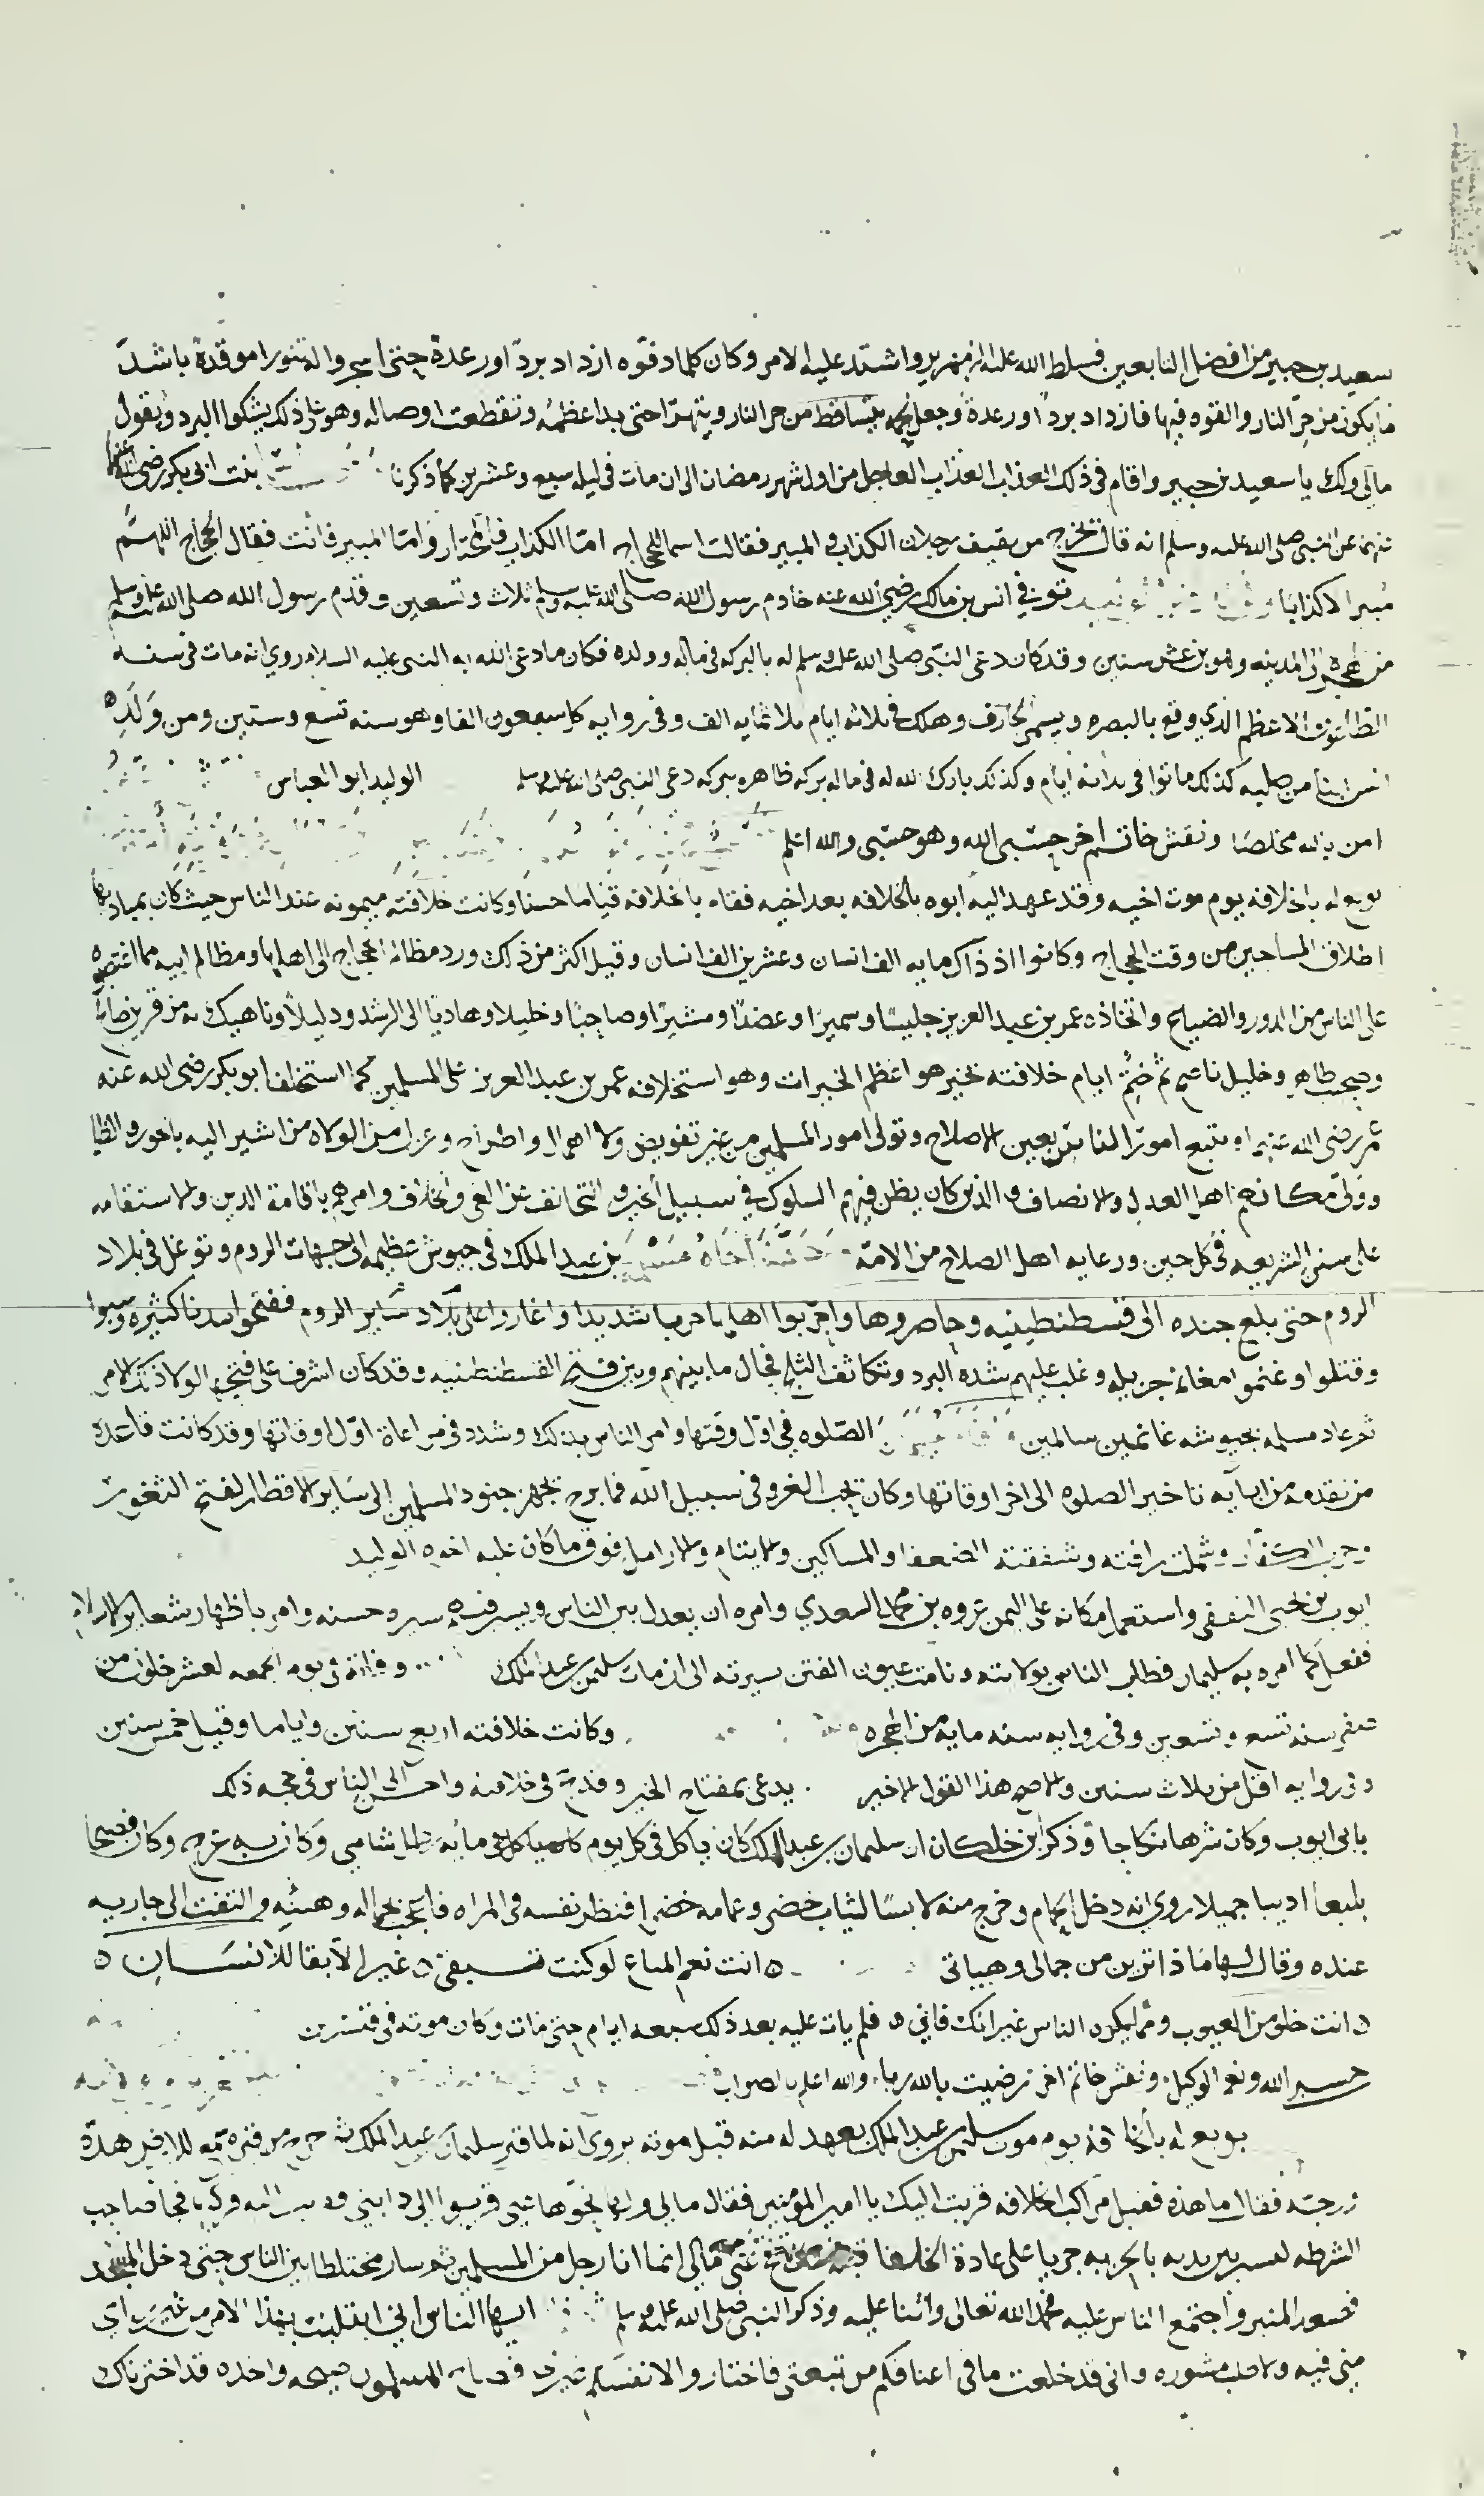 سعيد بن جبير من افضل التابعين فسلط الله عليه الزمهرير واشتد عليه الامر وكان كلما دفوه ازداد بردا ورعدة حتى اسجروا له تنورا موقدة باشد
ما يكون من حر النار والقوه فيها فازداد بردا ورعدة وجعل لحمه يتساقط من حر النار ويتهرا حتى بدا عظمه وتقطعت اوصاله وهو على ذلك يشكوا البرد ويقول
مالى ولك يا سعيد بن جبير واقام فى ذلك العذاب العذاب العاجل من اول شهر رمضان الى ان مات فى ليله سبع وعشرين كما ذكرنا بنت ابى بكر رضى الله عنهما
عن النبى صلى الله عليه وسلم انه قال يخرج من ثقيف رجلان الكذاب والمبير فقالت اسما للحجاج اما الكذاب فالمختار واما المبير فانت فقال الحجاج اللهم
مبير الكذابا توفي انس بن مالك رضي الله عنه خادم رسول الله صلى الله عليه وسلم ثلاث وتسعين وقدم رسول الله صلى الله عليه وسلم
من الهجره الى المدينه وهو بن عشر سنين وقد كان دعى النبى صلى الله عليه وسلم له بالبركه فى ماله وولده فكان ما دعى الله به النبى عليه السلام روي انه مات فى سنه
الطاعون الاعظم الذي وقع بالبصره ويسمى الجارف وهلك فى ثلاثه ايام ثلاثمايه الف وفى روايه كل يوم سبعون الفا وهو سنه تسع وستين ومن ولده
من صلبه كذلك ماتوا فى ثلاثه ايام وكذلك بارك الله له فى ماله بركه ظاهره ببركه دعى النبى صلى الله عليه وسلم الوليد ابو العباس
امن بالله مخلصا ونقش خاتم اخر حسبى الله وهو حسبى والله اعلم
بويع له بالخلافه يوم موت اخيه وقد عهد اليه ابوه بالخلافه بعد اخيه فقام بالخلافه قياما حسنا وكانت خلافته ميمونه عند الناس حيث كان
اطلاق المساجين من وقت الحجاج وكانوا اذ ذاك مايه الف انسان وعشرين الف انسان وقيل اكثر من ذلك ورد مظالم الحجاج الى اهلها ومظالم ابيه مما اغتصبه
على الناس من الدور والضياع واتخاذه عمر بن عبد العزيز جليسا وسميرا وعضدا ومشيرا وصاحبا وخليلا وهاديا الى الرشد ودليلا وناهيك به من قرين صالح
وصحب طاهر وخليل ناصح ثم ختم ايام خلافته بخير هو اعظم الخيرات وهو استخلافه عمر بن عبد العزيز على المسلمين كما استخلف ابو بكر رضى الله عنه
عمر رضى الله عنهما وتتبع امور الناس بعين الاصلاح وتولى امور المسلمين من غير تفويض ولا اهمال واطراح وعزل من الولاه من اشير اليه بالجور والظلم
وولى مكانهم اهل العدل والانصاف والذين كان يظن فيهم السلوك فى سبيل الخير والتجانف عن الغى والخلاف وامرهم باقامة الدين والاستقامه
على سنن الشريعه فى كل حين ورعايه اهل الصلاح من الامة بن عبد الملك فى جيوش عظيمه الى جهات الروم وتوغل فى بلاد
الروم حتى بلغ جنده الى قسطنطينيه وحاصروها وحاربوا اهلها حربا شديدا واغاروا على بلاد ساير الروم ففتحوا مدنا كثيره وسبوا
وقتلوا وغنموا مغانم جزيله وغلب عليهم شده البرد وتكاثف الثلج فحال ما بينهم وبين فتح القسطنطنيه وقد كان اشرف على فتحها لولا ذلك الامر
ثم عاد مسلمه بجيوشه غانمين سالمين الصلوه فى اول وقتها وامر الناس بذلك وشدد فى مراعاة اول اوقاتها وقد كانت قاعدة
من تقدمه من ابايه تاخير الصلوه الى اخر اوقاتها وكان يحب الغزو فى سبيل الله فما برح يجهز جنود المسلمين الى ساير الاقطار لفتح الثغور
وحرب الكفار وشملت رافته وشفقته الضعفا والمساكين والايتام والارامل فوق ما كان عليه اخوه الوليد
ايوب بن يحيى الثقفى واستعمل مكانه على اليمن عروه بن محمد السعدي وامره ان يعدل بين الناس ويسير فيهم سيره حسنه وامر باظهار شعاير الاسلام
ففعل كما امره به سليمان فطاب الناس بولايته ونامت عيون الفتن سيرته الى ان مات سليمن بن عبد الملك وفاته فى يوم الجمعه لعشر خلون من
صفر سنه تسع وتسعين وفى روايه سنه مايه من الهجره وكانت خلافته اربع سنين واياما وقيل خمس سنين
وفى روايه اقل من ثلاث سنين والاصح هذا القول الاخير يدعى بمفتاح الخير فى خلافته واحسن الى الناس ذلك
بابى ايوب وكان شرها نكاحا وذكر ابن خلكان ان سليمان بن عبد الملك كان ياكل فى كل يوم مائه رطل شامي وكان به عرج وكان فصيحا
بليغا اديبا جميلا روي انه دخل الحمام وخرج منه لابسا لثياب خضر وعمامه خضرا فنظر نفسه فى المراه فاعجب بجماله وهيئته والتفت الى جاريه
عنده وقال لها ماذا ترين من جمالى وهياتى ه انت نعم المتاع لو كنت تبقى ه غير الا بقا للانسان ه
ه انت خلو من العيوب ومما يكره الناس غير انك فاني ه فلم يات عليه بعد ذلك سبعه ايام حتى مات وكان موته فى قنسرين
حسبي الله ونعم الوكيل ونقش خاتم اخر رضيت بالله ربا والله اعلم بالصواب
بويع له بالخلافه يوم موت سليمن بن عبد الملك بعهد له منه قبل موته يروى انه لما قبر سليمان بن عبد الملك
فقال ما هذه فقيل مراكب الخلافه قربت اليك يا امير المومنين فقال مالي ولها نحوها عنى قربوا الى دابتي فجا صاحب
الشرطه ليسير بين يديه بالحربه جريا على عادة الخلفا تنح عنى مالى انما انا رجل من المسلمين ثم سار مختلطا بين الناس حتى دخل المسجد
فصعد المنبر واجتمع الناس عليه فحمد الله تعالى واثنا عليه وذكر النبى صلى الله عليه وسلم ايها الناس اني ابتليت بهذا الامر من غير راي
مني فيه ولا طلب مشوره وانى قد خلعت ما فى اعناقكم من تبعتى فاختاروا لانفسكم غيري فصاح المسلمون صيحه واحده قد اخترناك